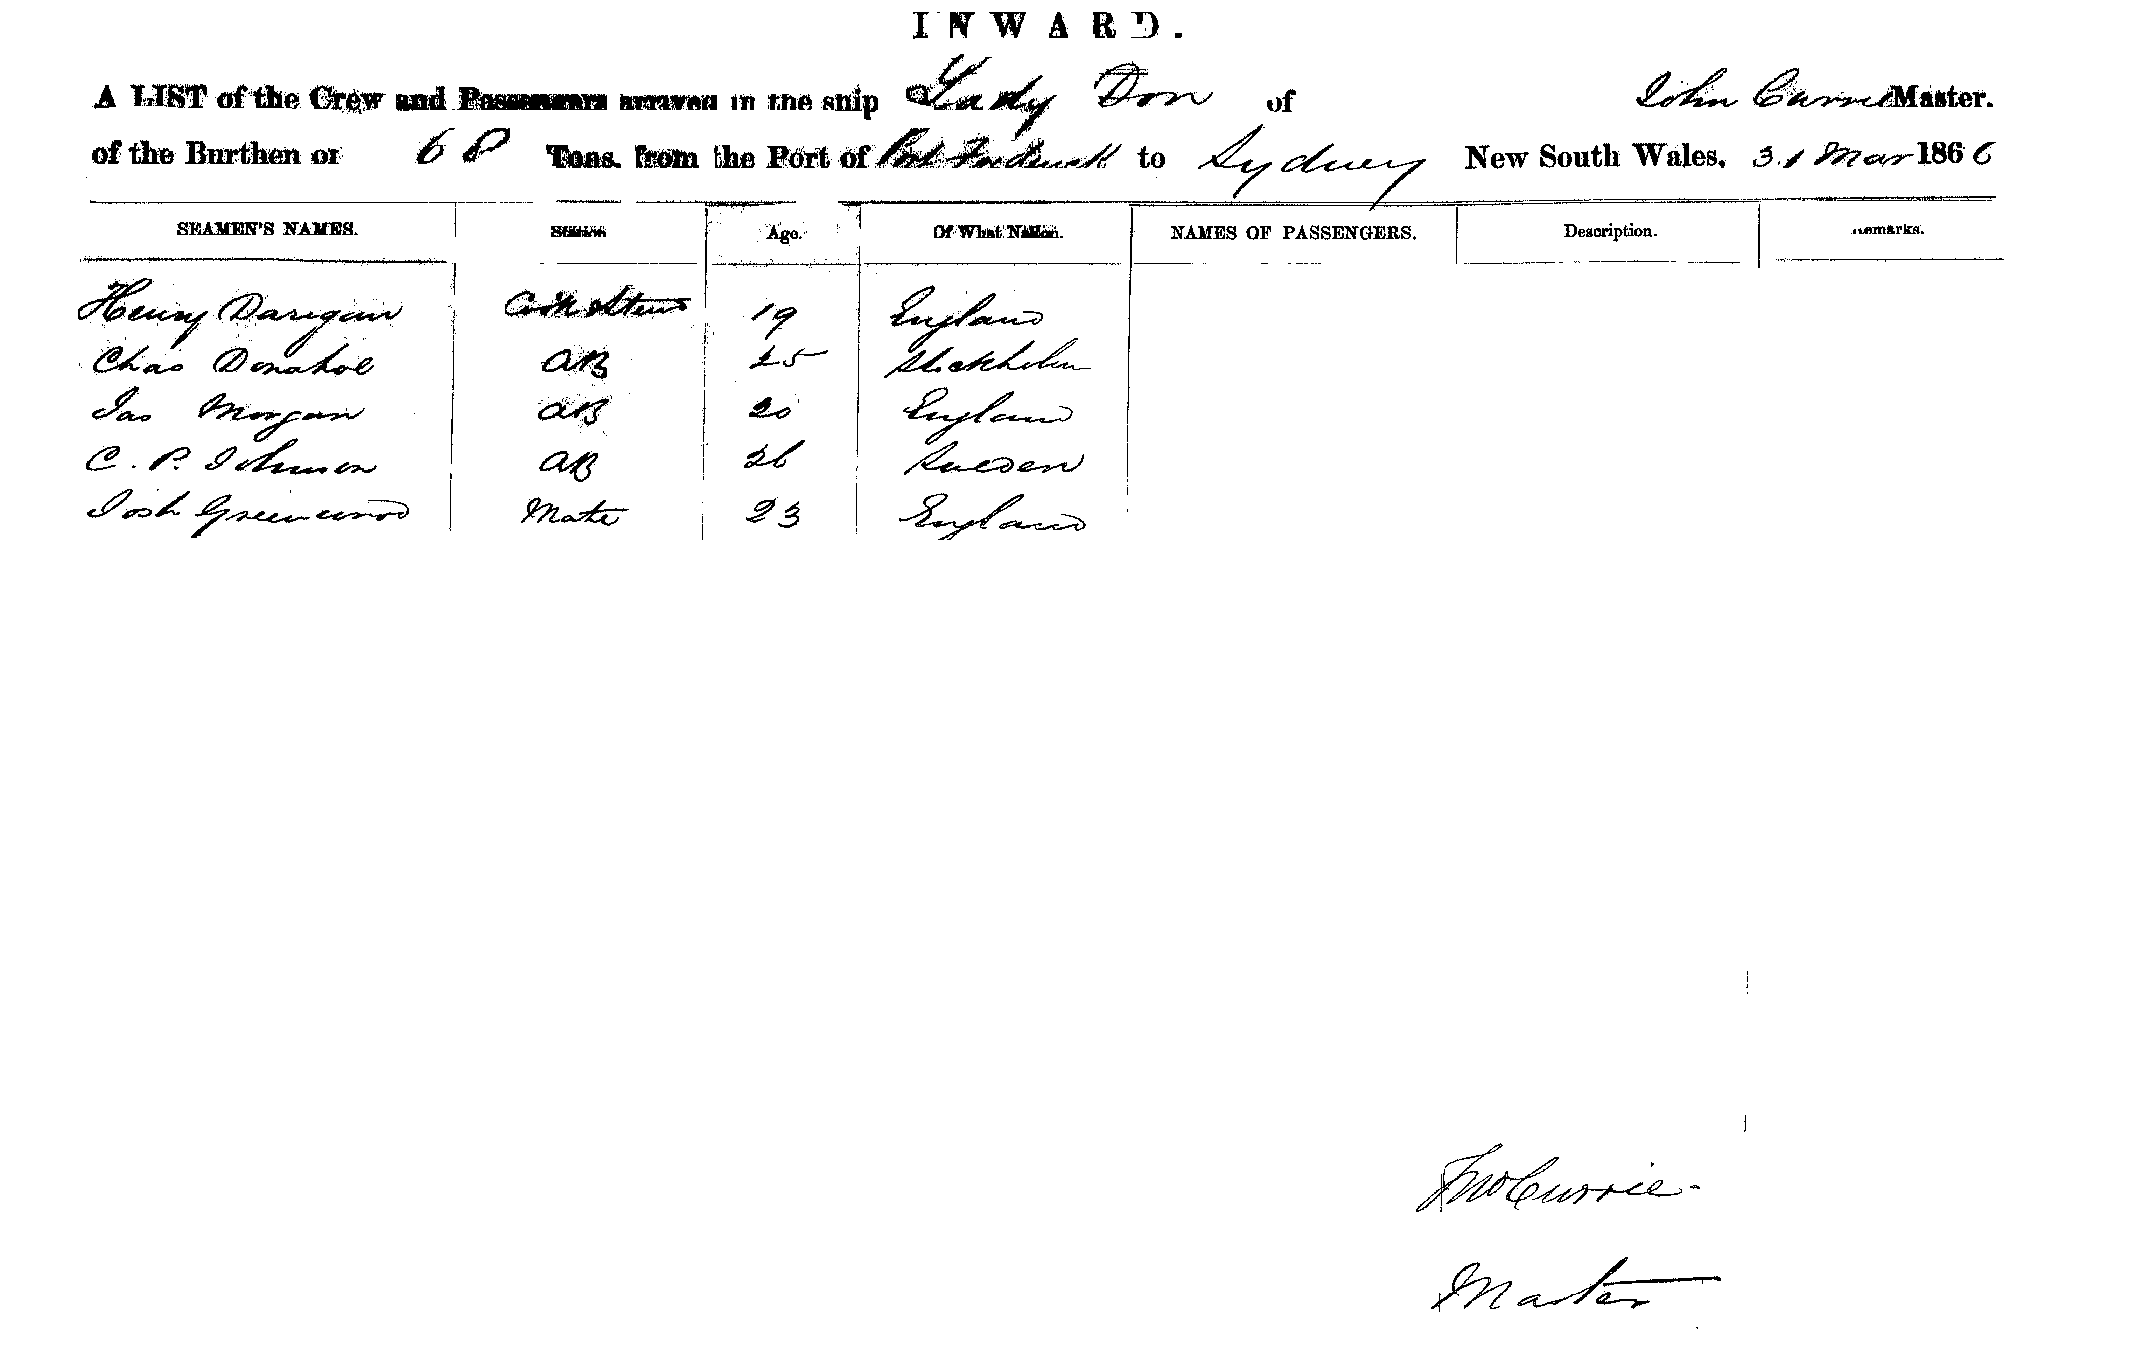 INWARD.
A LIST of the Crew and Passengers arrived in the ship Lady Don of John Currie Master.
of the Burthen of 68 Tons. from the Port of Port Frederick to Sydney New South Wales, 31 Mar 1866
SEAMEN'S NAMES. Station Age. Of What Nation. NAMES OF PASSENGERS. Description. Remarks.
Henry 19 England
Chas Donahoe AB 25 Stockholm
Jas Morgan AB 20 England
C. P. Johnson AB 26 Sweden
Josh Greenwood Mate 23 England
Jno Currie
Master